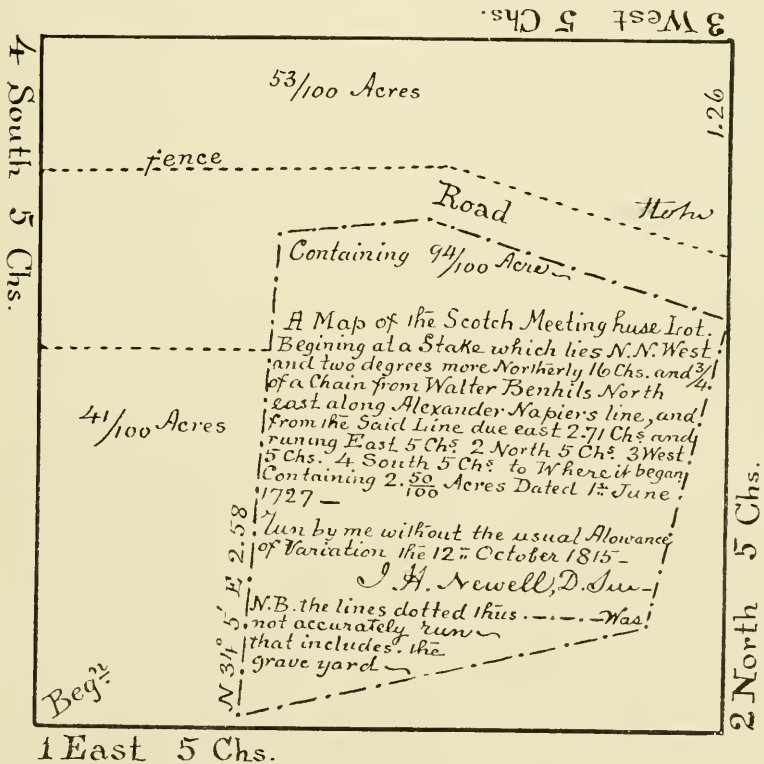 3 West 5 Chs.
4 South 5 Chs.
53/100 Acres
1.26
fence
Road
Containing 94/100 Acre
A Map of the Scotch Meeting huse Lot.
Begining at a Stake which lies N.N. West
and two degrees more Northerly 16 Chs. and 3/4
of a Chain from Walter Benhils North
east along Alexander Napiers line, and
from the Said Line due east 2.71 Chs and
runing East 5 Chs. 2 North 5 Chs. 3 West
5 Chs. 4 South 5 Chs. to Where it began
Containing 2.50/100 Acres Dated 1st June
1727 —
Run by me without the usual Alowance
of Variation the 12th October 1815 —
J. H. Newell, D. Sur —
N.B. the lines dotted thus .—.—.— Was
not accurately run
that includes. the
grave yard
41/100 Acres
N 34° 5' E 2.58
Beg'n
2 North 5 Chs.
1 East 5 Chs.